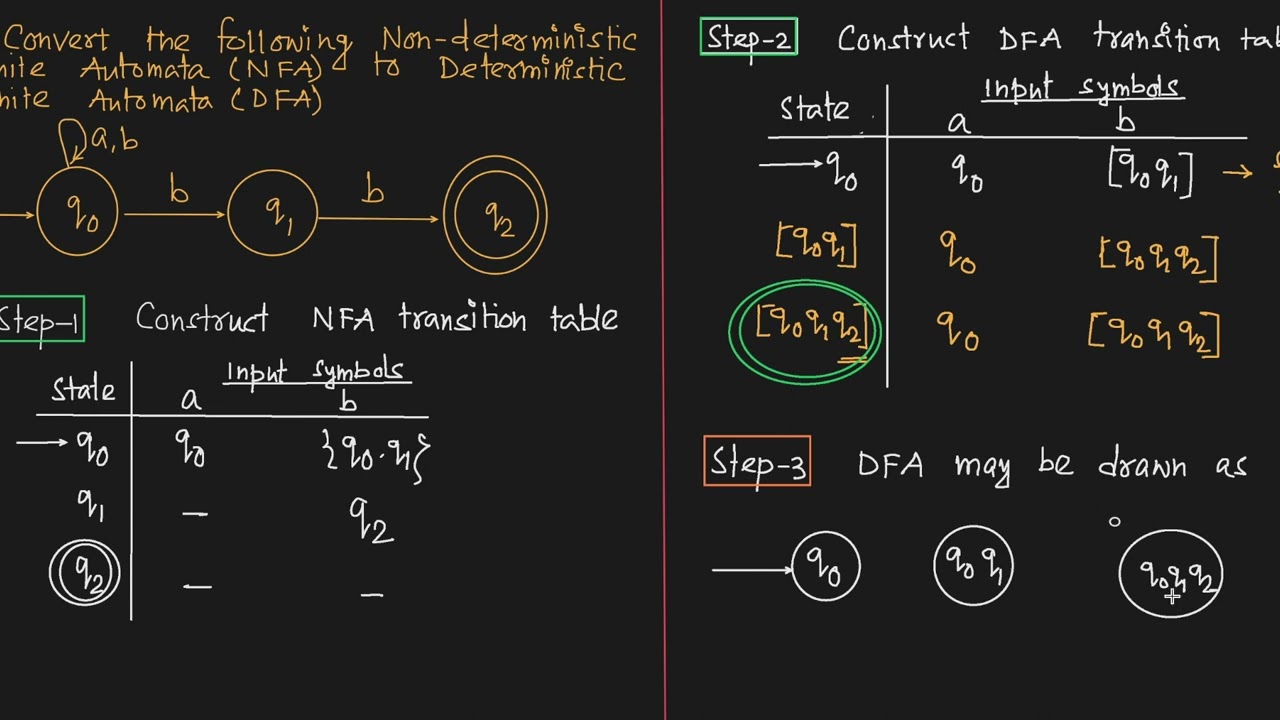 Convert the following Non-deterministic
nite Automata (NFA) to Deterministic
nite Automata (DFA)
a,b
q0 b q1 b q2
Step-1 Construct NFA transition table
State Input symbols
a b
→ q0 q0 {q0.q1}
q1 — q2
q2 — —
Step-2 Construct DFA transition tab
State Input symbols
a b
→ q0 q0 [q0 q1] →
[q0q1] q0 [q0 q1 q2]
[q0 q1 q2] q0 [q0 q1 q2]
Step-3 DFA may be drawn as
q0 q0 q1 q0q1q2